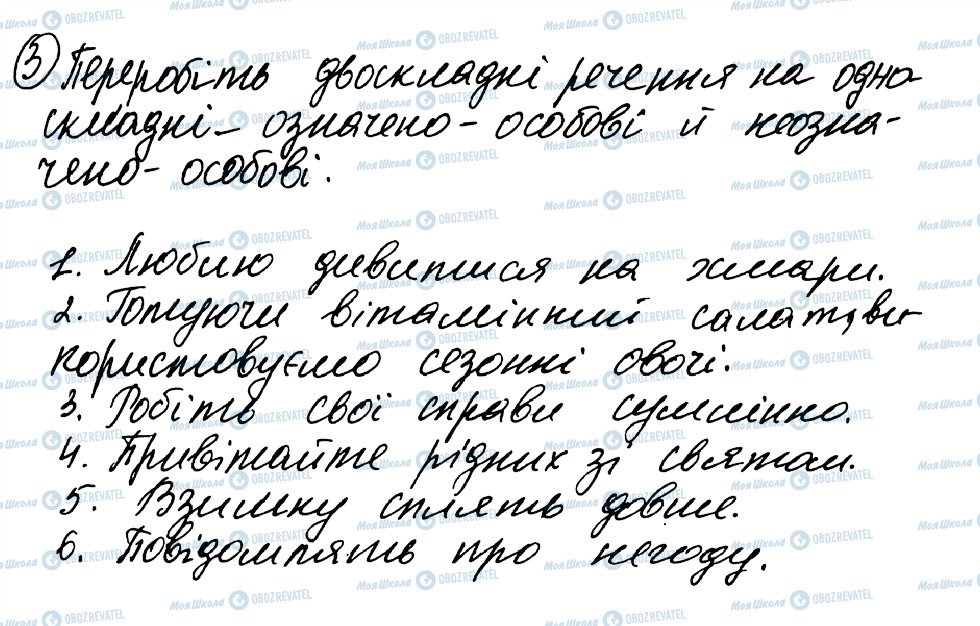 3 Переробіть двоскладні речення на одно-
складні - означено-особові й неозна-
чено-особові.
1. Люблю дивитися на хмари.
2. Готуючи вітамінний салат, ви-
користовуємо сезонні овочі.
3. Робіть свої справи сумлінно.
4. Привітайте рідних зі святом.
5. Взимку сплять довше.
6. Повідомлять про негоду.